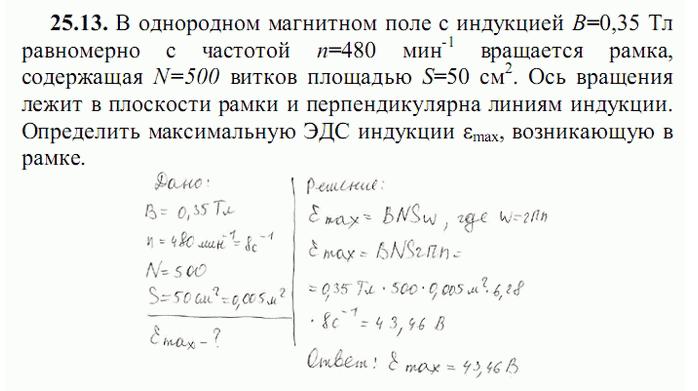 25.13. В однородном магнитном поле с индукцией B=0,35 Тл
равномерно с частотой n=480 мин⁻¹ вращается рамка,
содержащая N=500 витков площадью S=50 см². Ось вращения
лежит в плоскости рамки и перпендикулярна линиям индукции.
Определить максимальную ЭДС индукции εmax, возникающую в
рамке.
Дано:
B = 0,35 Тл
n = 480 мин⁻¹ = 8с⁻¹
N = 500
S = 50 см² = 0,005 м²
Ɛmax - ?
Решение:
Ɛmax = BNSw, где w=2πn
Ɛmax = BNS2πn =
= 0,35 Тл · 500 · 0,005 м² · 6,28
· 8с⁻¹ = 43,46 В
Ответ: Ɛmax = 43,46 В